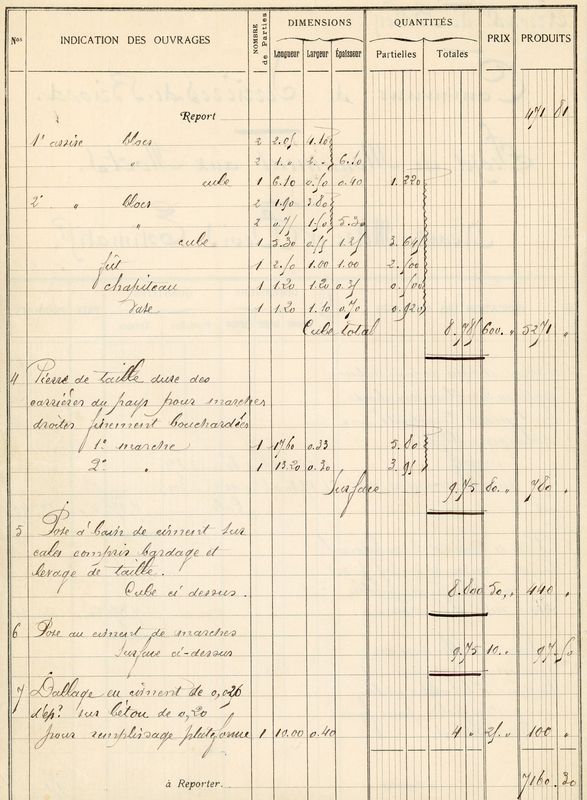 Nos INDICATION DES OUVRAGES NOMBRE de Parties DIMENSIONS QUANTITÉS PRIX PRODUITS
Longueur Largeur Épaisseur Partielles Totales
Report 471 81
1e assise blocs 2 2.05 4.10
" 2 1. " 2. " 6.10
cube 1 6.10 0.50 0.40 1.220
2e " blocs 2 1.90 3.80
" 2 0.75 1.50 5.30
cube 1 5.30 0.55 1.25 3.645
fût 1 2.50 1.00 1.00 2.500
chapiteau 1 1.20 1.20 0.35 0.500
Vase 1 1.20 1.10 0.70 0.920
Cube total 8.785 600. " 5271 "
4 Pierre de taille dure des
carrières du pays pour marches
droites finement bouchardées
1e marche 1 17.60 0.33 5.80
2e " 1 13.20 0.30 3.95
Surface 9.75 80. " 780 "
5 Pose à bain de ciment sur
cales compris bardage et
levage de taille.
Cube ci dessus. 8.800 50. " 440 "
6 Pose au ciment de marches
surface ci-dessus 9.75 10. " 97.50
7 Dallage en ciment de 0,026
d'ép.r sur béton de 0,20
pour remplissage plateforme 1 10.00 0.40 4 " 25. " 100 "
à Reporter 7160.30